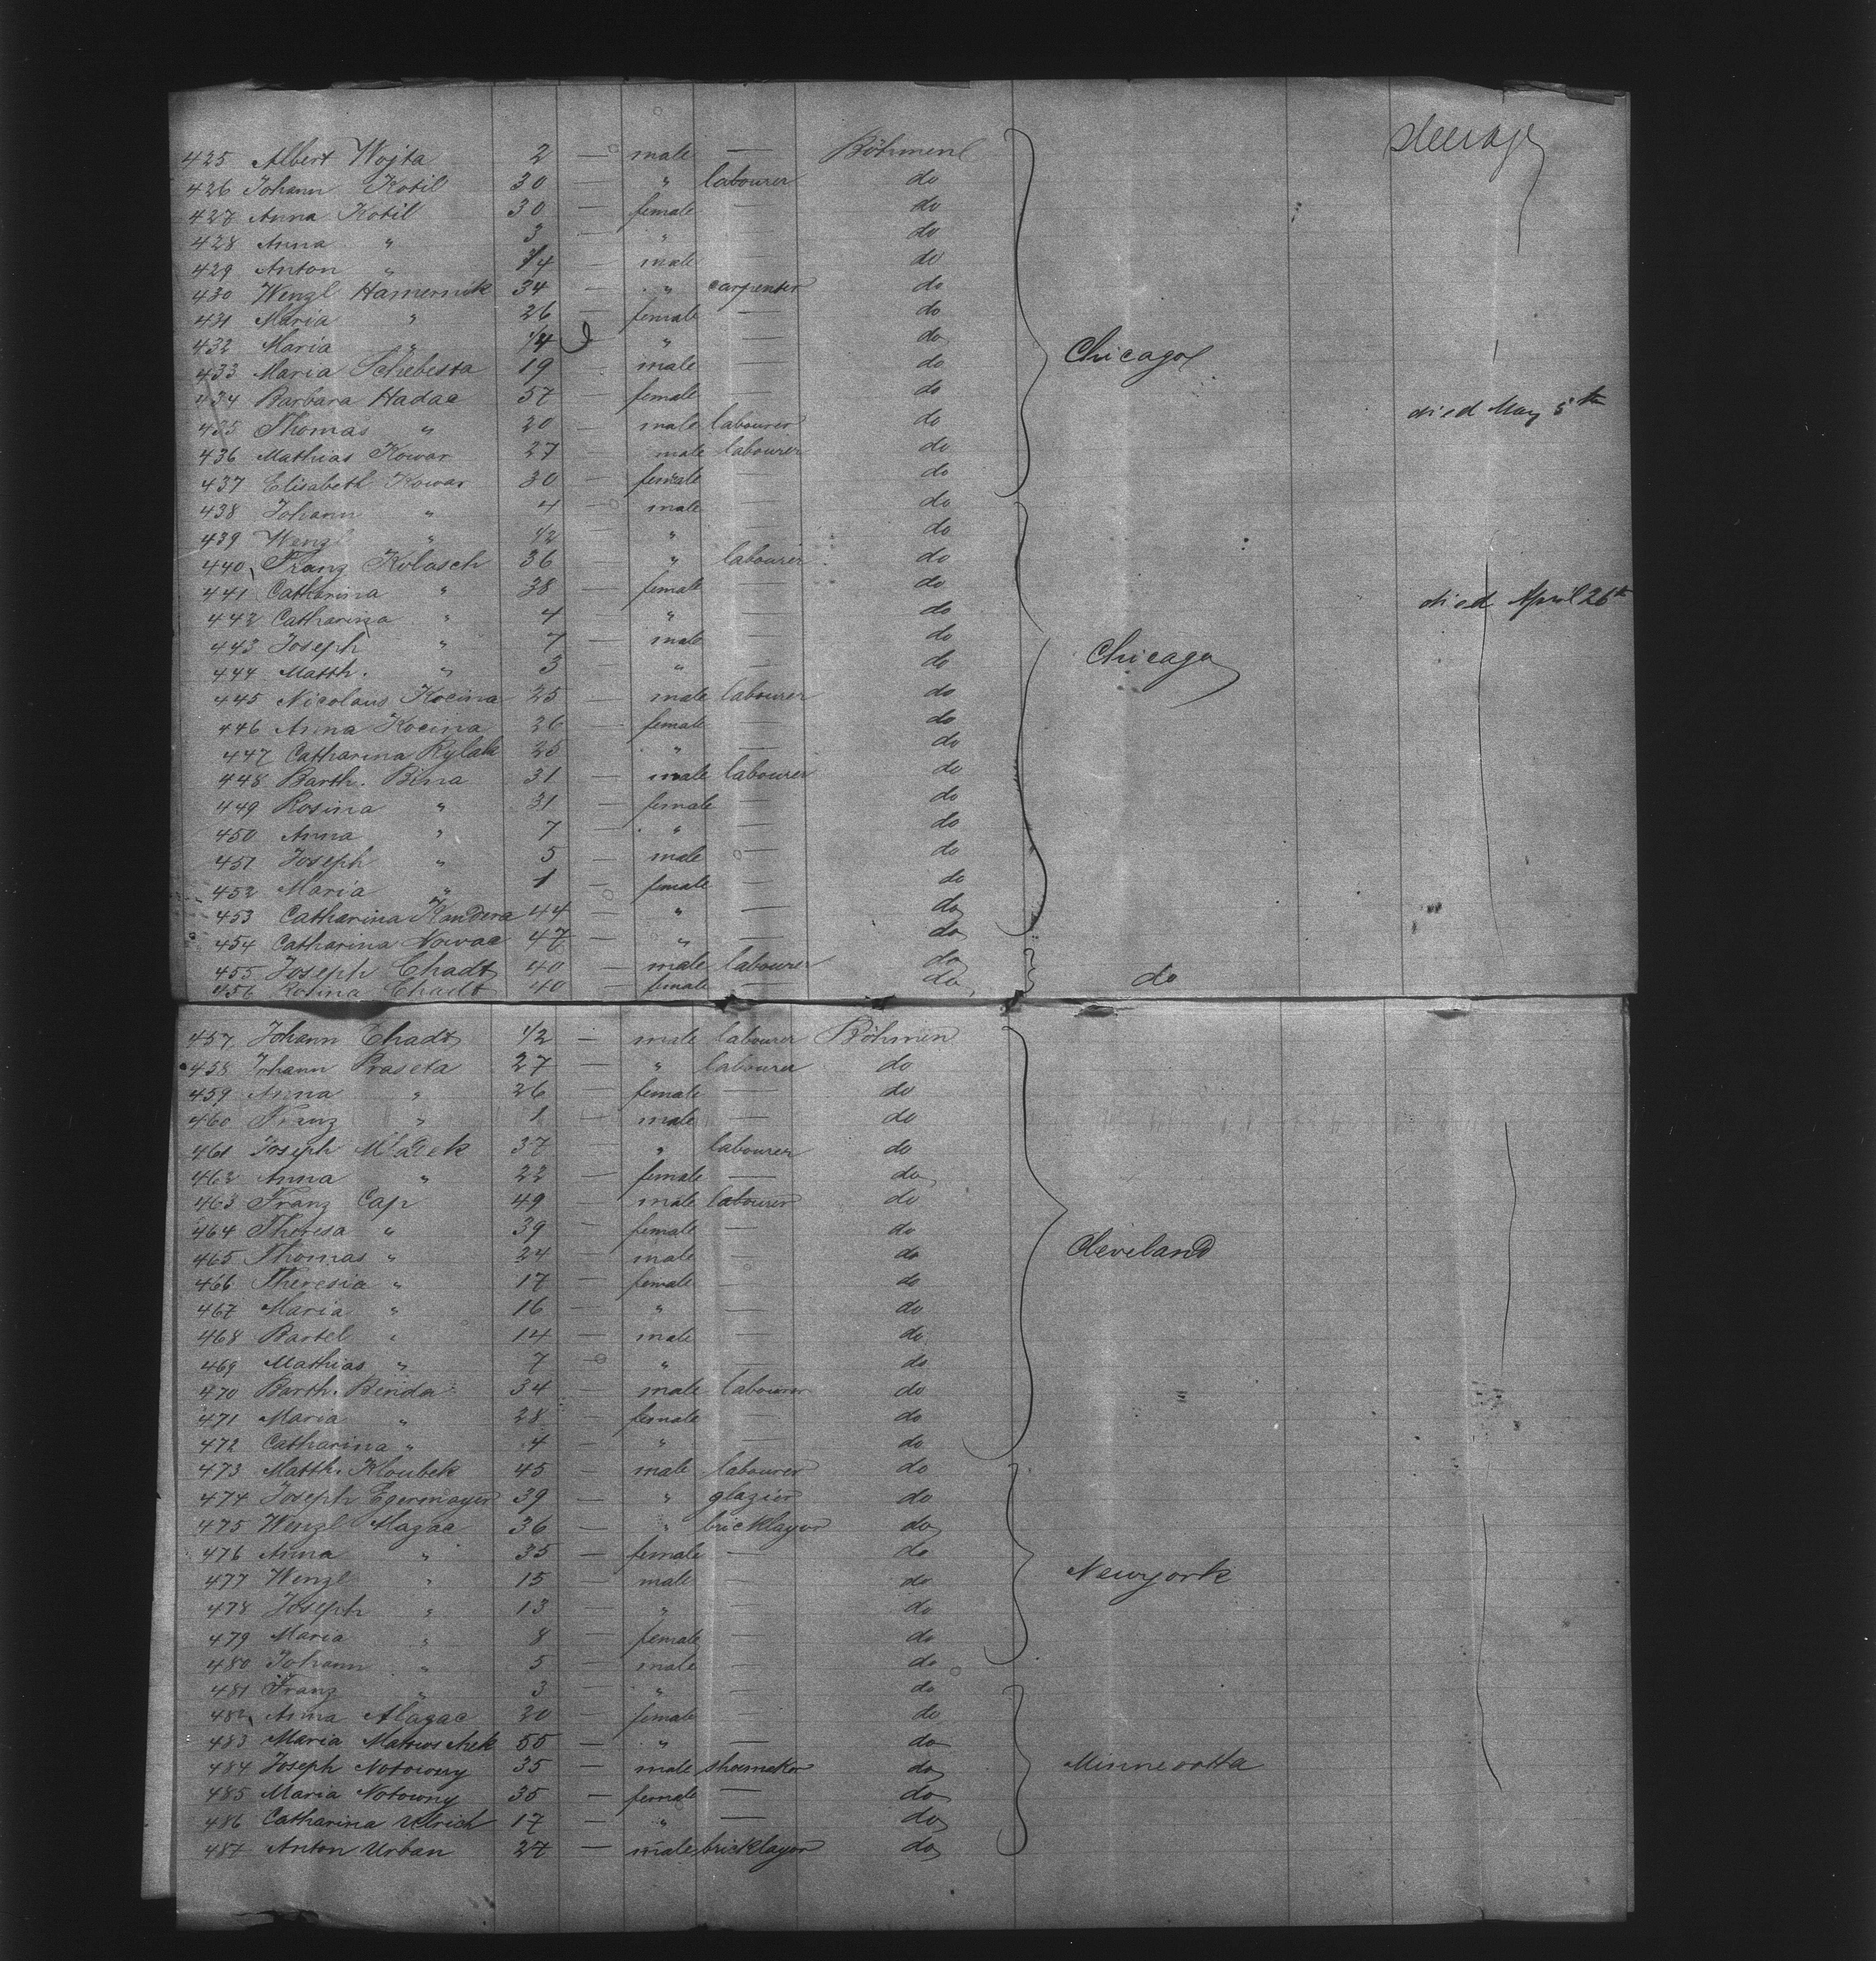 Steerage
425 Albert Wojta 2 — male — Böhmen
426 Johann Kotil 30 — " labourer do
427 Anna Kotil 30 — female — do
428 Anna " 3 — " — do
429 Anton " 3/4 — male — do
430 Wenzl Hamernik 34 — " carpenter do
431 Maria " 26 — female — do
432 Maria " 1/4 " — do
Chicago
433 Maria Schebesta 19 — male — do
434 Barbara Hadac 57 — female — do died May 5th
435 Thomas " 20 — male labourer do
436 Mathias Kowar 27 — male labourer do
437 Elisabeth Kowar 30 — female do
438 Johann " 4 — male — do
439 Wenzl " 1/2 " — do
440 Franz Kobasch 36 " labourer do
441 Catharina " 38 — female — do
442 Catharina " 4 — " — do died April 26th
443 Joseph " 7 — male — do
444 Matth. " 3 — " — do
Chicago
445 Nicolaus Kocina 25 — male labourer do
446 Anna Kocina 26 — female — do
447 Catharina Rylak 25 " — do
448 Barth. Bina 31 — male labourer do
449 Rosina " 31 — female — do
450 Anna " 7 — " — do
451 Joseph " 5 — male — do
452 Maria " 1 — female — do
453 Catharina Kandera 44 — " — do
454 Catharina Nowac 47 — " — do
455 Joseph Chadt 40 — male labourer do
456 Rosina Chadt 40 — female — do do
457 Johann Chadt 1/2 — male labourer Böhmen
458 Johann Praseta 27 — " labourer do
459 Anna " 26 — female — do
460 Franz " 1 — male — do
461 Joseph Mladek 37 — " labourer do
462 Anna " 22 — female — do
463 Franz Cap 49 — male labourer do
464 Theresa " 39 — female — do
465 Thomas " 24 — male — do
Cleveland
466 Theresia " 17 — female — do
467 Maria " 16 — " — do
468 Bartel " 14 — male — do
469 Mathias " 7 — " — do
470 Barth. Benda 34 — male labourer do
471 Maria " 28 — female — do
472 Catharina " 4 — " — do
473 Matth. Kloubek 45 — male labourer do
474 Joseph Egermayer 39 — " glazier do
475 Wenzl Alazac 36 — " bricklayer do
476 Anna " 35 — female — do
477 Wenzl " 15 — male — do Newyork
478 Joseph " 13 — " — do
479 Maria " 8 — female — do
480 Johann " 5 — male — do
481 Franz " 3 — " — do
482 Anna Alazac 20 — female — do
483 Maria Matuschek 55 — " — do
484 Joseph Notowny 35 — male shoemaker do Minnesotta
485 Maria Notowny 35 — female — do
486 Catharina Ulrich 17 — " — do
487 Anton Urban 27 — male bricklayer do